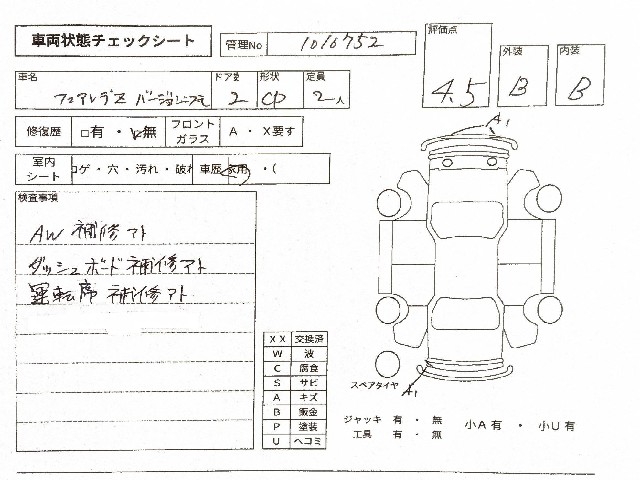 車両状態チェックシート
管理No 1016752
評価点 4.5
外装 B
内装 B
車名 フェアレディZ バージョン
ドア数 2
形状 CP
定員 2人
修復歴 □有・レ無
フロントガラス A・X要す
室内シート コゲ・穴・汚れ・破れ
車歴 家用・(
検査事項
AW 補修アト
ダッシュボード補修アト
運転席 補修アト
A1
XX 交換済
W 波
C 腐食
S サビ
A キズ
B 鈑金
P 塗装
U ヘコミ
スペアタイヤ
A1
ジャッキ 有・無
工具 有・無
小A有・小U有